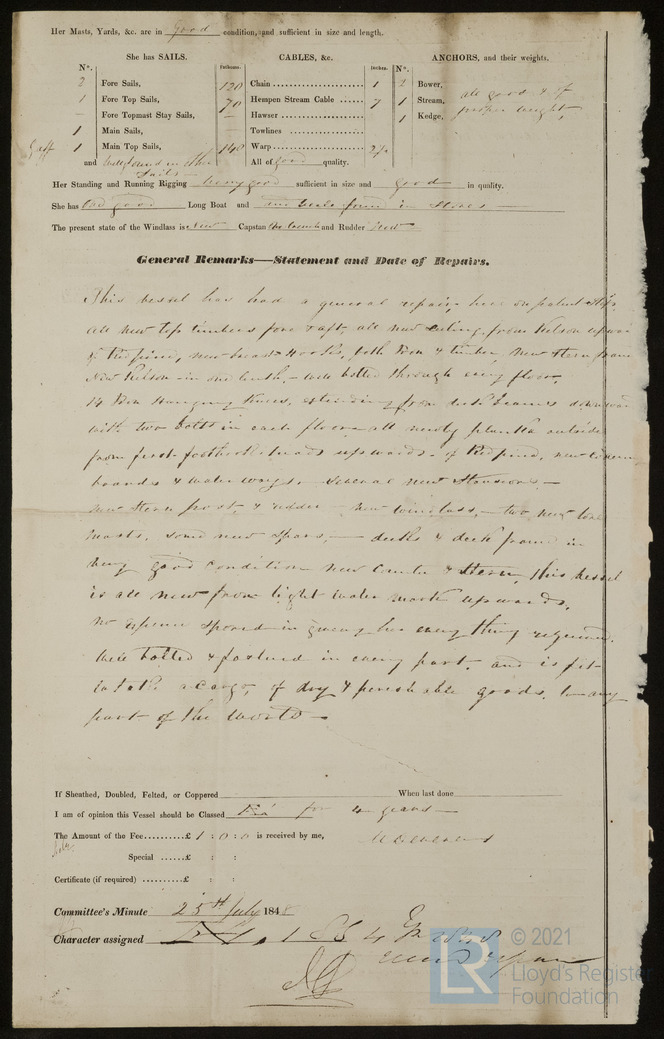 Her Masts, Yards, &c. are in good condition, and sufficient in size and length.
She has SAILS. CABLES, &c. ANCHORS, and their weights.
No. Fathoms. Inches. No.
2 Fore Sails, 120 Chain 1 Bower, all good & of
1 Fore Top Sails, 70 Hempen Stream Cable 7 1 Stream, proper weight,
Fore Topmast Stay Sails, Hawser 1 Kedge,
1 Main Sails, Towlines
Gaff 1 Main Top Sails, 140 Warp
and well found in other All of good quality.
Sails
Her Standing and Running Rigging very good sufficient in size and good in quality.
She has one good Long Boat and
The present state of the Windlass is New Capstan and Rudder New
General Remarks—Statement and Date of Repairs.
This vessel has had a general repair, here on patent Slip,
all new top timbers fore & aft, all new ceiling from Kelson upwar
of Red pine, new breast Hooks, both Iron & timber, New Stern frame
New Kelson in one length, well bolted through every floor,
14 Iron Hanging Knees, extending from deck beams downwar
with two bolts in each floor all newly plank'd outside
from first foothook heads upwards of Red pine, new
boards & water ways, several new Stansions
new Stern post & rudder new windlass, two new lower
masts, some new spars, decks & deck frame in
very good condition new Counter & Stern, this vessel
is all new from light water mark upwards,
no expence spared in giving her every thing required
well bolted & fastened in every part, and is fit
to take a Cargo, of dry & perishable goods, to any
part of the World
If Sheathed, Doubled, Felted, or Coppered When last done
I am of opinion this Vessel should be Classed for 4 years
The Amount of the Fee £ 1 : 0 : 0 is received by me,
Special £ : :
Certificate (if required) £ : :
Committee's Minute 25th July 1848
Character assigned
© 2021
LR
Lloyd's Register
Foundation